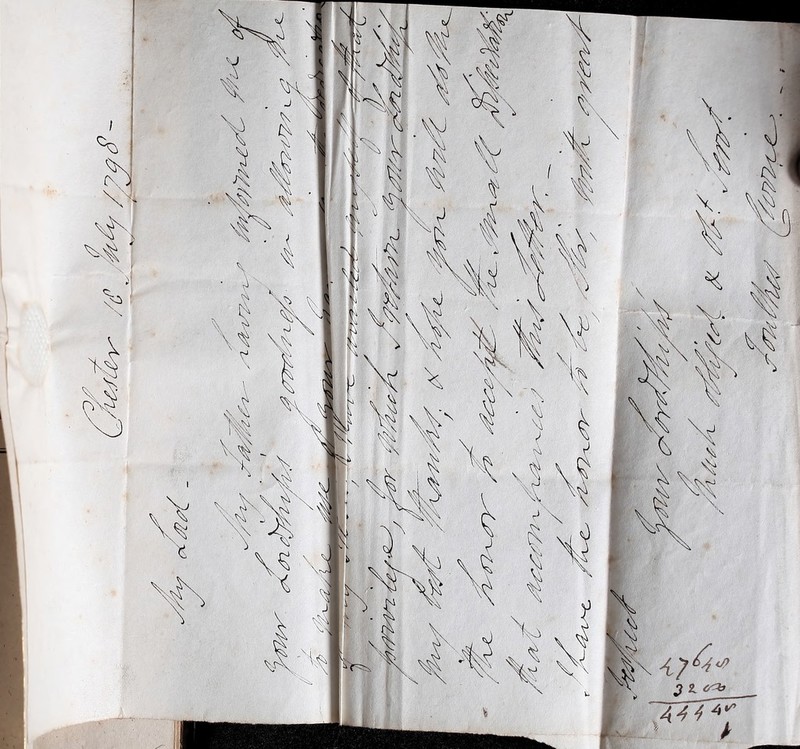 Chester 18 July 1798 -
My Lord -
My Father having informed me of
your Lordship's goodness in allowing me
to make use of your
I have availed myself of that
privilege, for which I return your Lordship
my best thanks; & hope you will do me
the honor to accept the small Dissertation
that accompanies this Letter. -
I have the honor to be, Sir, with great
respect
Your Lordship's
Much obliged & Obt. Servt.
Foulkes Corrie. -
4764
320
444